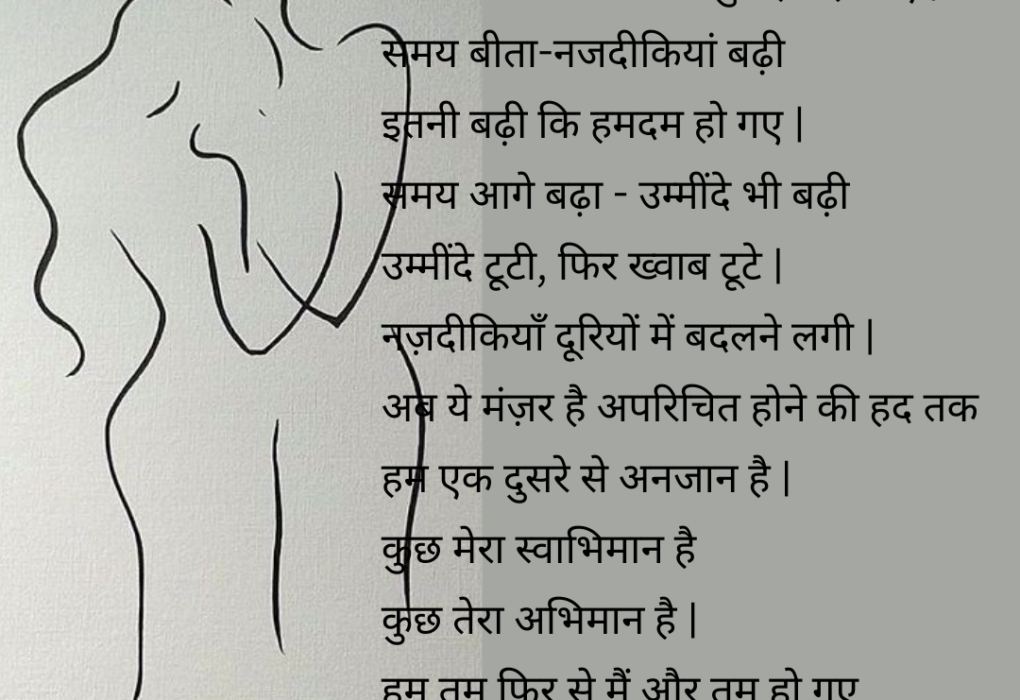 समय बीता-नजदीकियां बढ़ी
इतनी बढ़ी कि हमदम हो गए |
समय आगे बढ़ा - उम्मींदे भी बढ़ी
उम्मींदे टूटी, फिर ख्वाब टूटे |
नज़दीकियाँ दूरियों में बदलने लगी |
अब ये मंज़र है अपरिचित होने की हद तक
हम एक दुसरे से अनजान है |
कुछ मेरा स्वाभिमान है
कुछ तेरा अभिमान है |
हम तुम फिर से मैं और तुम हो गए